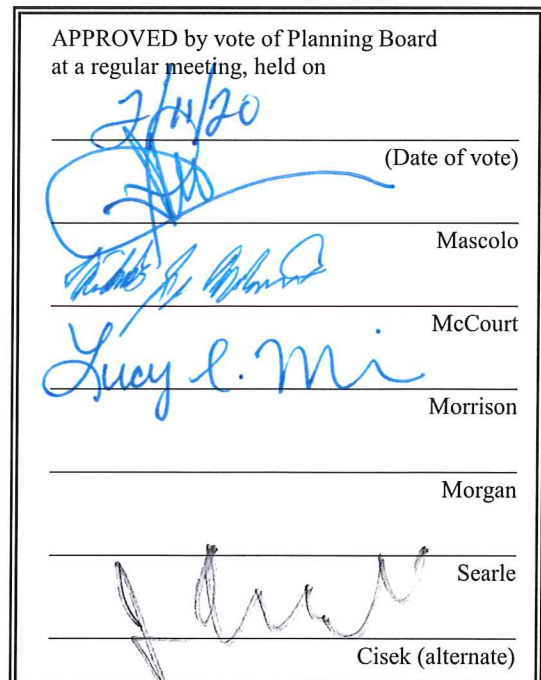 APPROVED by vote of Planning Board
at a regular meeting, held on
2/11/20
(Date of vote)
Mascolo
McCourt
Lucy C. M
Morrison
Morgan
Searle
Cisek (alternate)